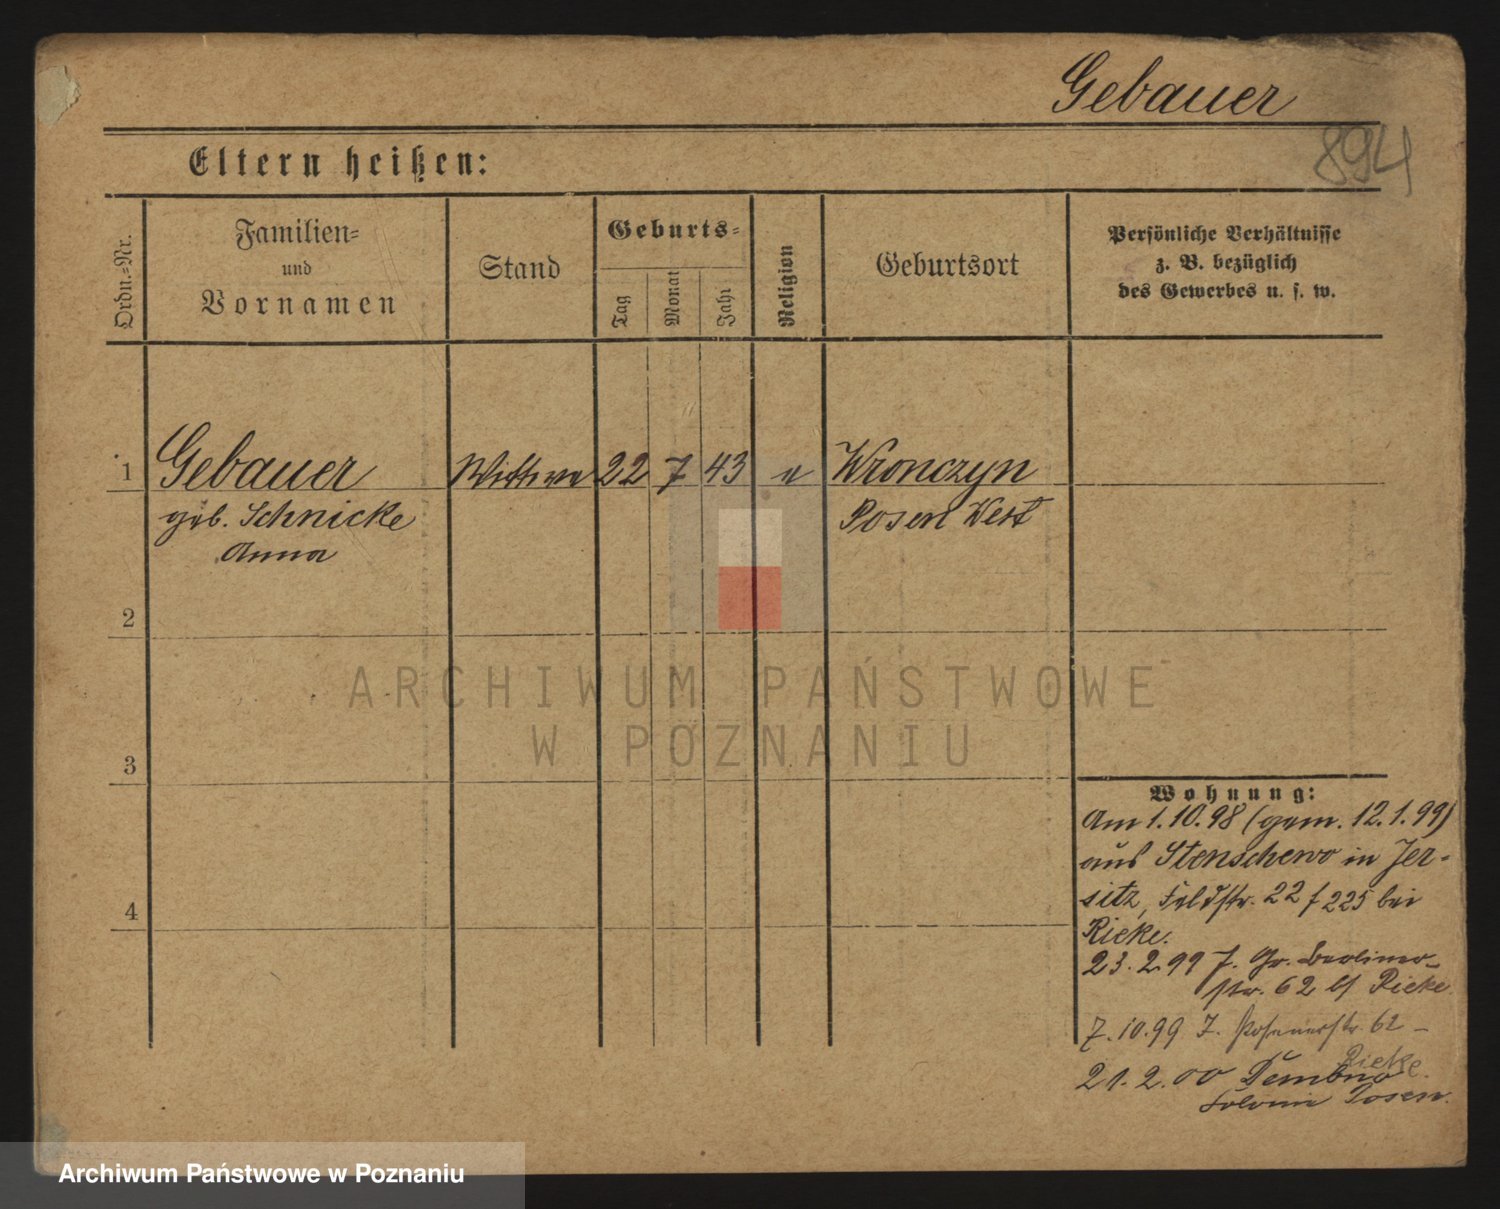 Gebauer
894
Eltern heißen:
Ordn.=Nr.
Familien=
und
Vornamen
Stand
Geburts=
Tag
Monat
Jahr
Religion
Geburtsort
Persönliche Verhältnisse
z. B. bezüglich
des Gewerbes u. s. w.
1 Gebauer Wittwe 22 7 43 e Wronczyn
geb. Schnicke Posen West
Anna
2
3
4
ARCHIWUM PAŃSTWOWE
W POZNANIU
Wohnung:
Am 1.10.98 (gem. 12.1.99)
aus Stenschewo in Jer-
sitz, Feldstr. 22 / 225 bei
Rieke.
23.2.99 J. Gr. Berliner-
str. 62 b/ Rieke
7.10.99 J. Posenerstr. 62 -
Rieke.
21.2.00 Dembno
Kolonie Posen.
Archiwum Państwowe w Poznaniu